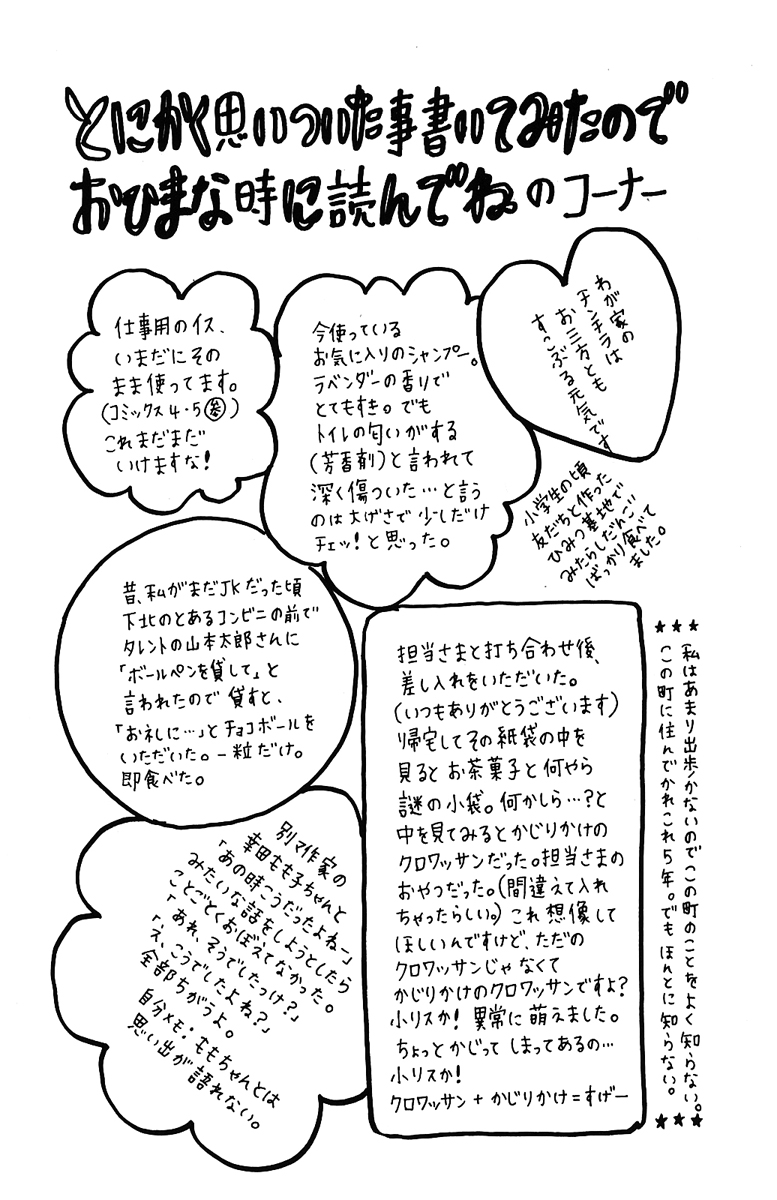 とにかく思いついた事書いてみたので
おひまな時に読んでね のコーナー
仕事用のイス、
いまだにその
まま使ってます。
(コミックス4・5㊂)
これまだまだ
いけますな!
今使っている
お気に入りのシャンプー。
ラベンダーの香りで
とてもすき。でも
トイレの匂いがする
(芳香剤)と言われて
深く傷ついた…と言う
のは大げさで 少しだけ
チェッ!と思った。
わが家の
チンチラは
お三方とも
すこぶる元気です
小学生の頃
友だちと作った
ひみつ基地で
みたらしだんご
ばっかり食べて
ました。
昔、私がまだJKだった頃
下北のとあるコンビニの前で
タレントの山本太郎さんに
「ボールペンを貸して」と
言われたので 貸すと、
「お礼に…」とチョコボールを
いただいた。一粒だけ。
即食べた。
担当さまと打ち合わせ後、
差し入れをいただいた。
(いつもありがとうございます)
帰宅してその紙袋の中を
見ると お茶菓子と何やら
謎の小袋。何かしら…?と
中を見てみるとかじりかけの
クロワッサンだった。担当さまの
おやつだった。(間違えて入れ
ちゃったらしい。)これ 想像して
ほしいんですけど、ただの
クロワッサンじゃなくて
かじりかけのクロワッサンですよ?
小リスか! 異常に萌えました。
ちょっとかじって しまってあるの…
小リスか!
クロワッサン + かじりかけ = すげー
★★★
私はあまり出歩かないのでこの町のことをよく知らない。
この町に住んでかれこれ5年。でもほんとに知らない。
★★★
別マ作家の
幸田もも子ちゃんと
「あの時こうだったよねー」
みたいな話をしようとしたら
ことごとくおぼえてなかった。
「あれ、そうでしたっけ?」
「え、こうでしたよね?」
全部ちがうよ。
自分メモ:ももちゃんとは
思い出が語れない。